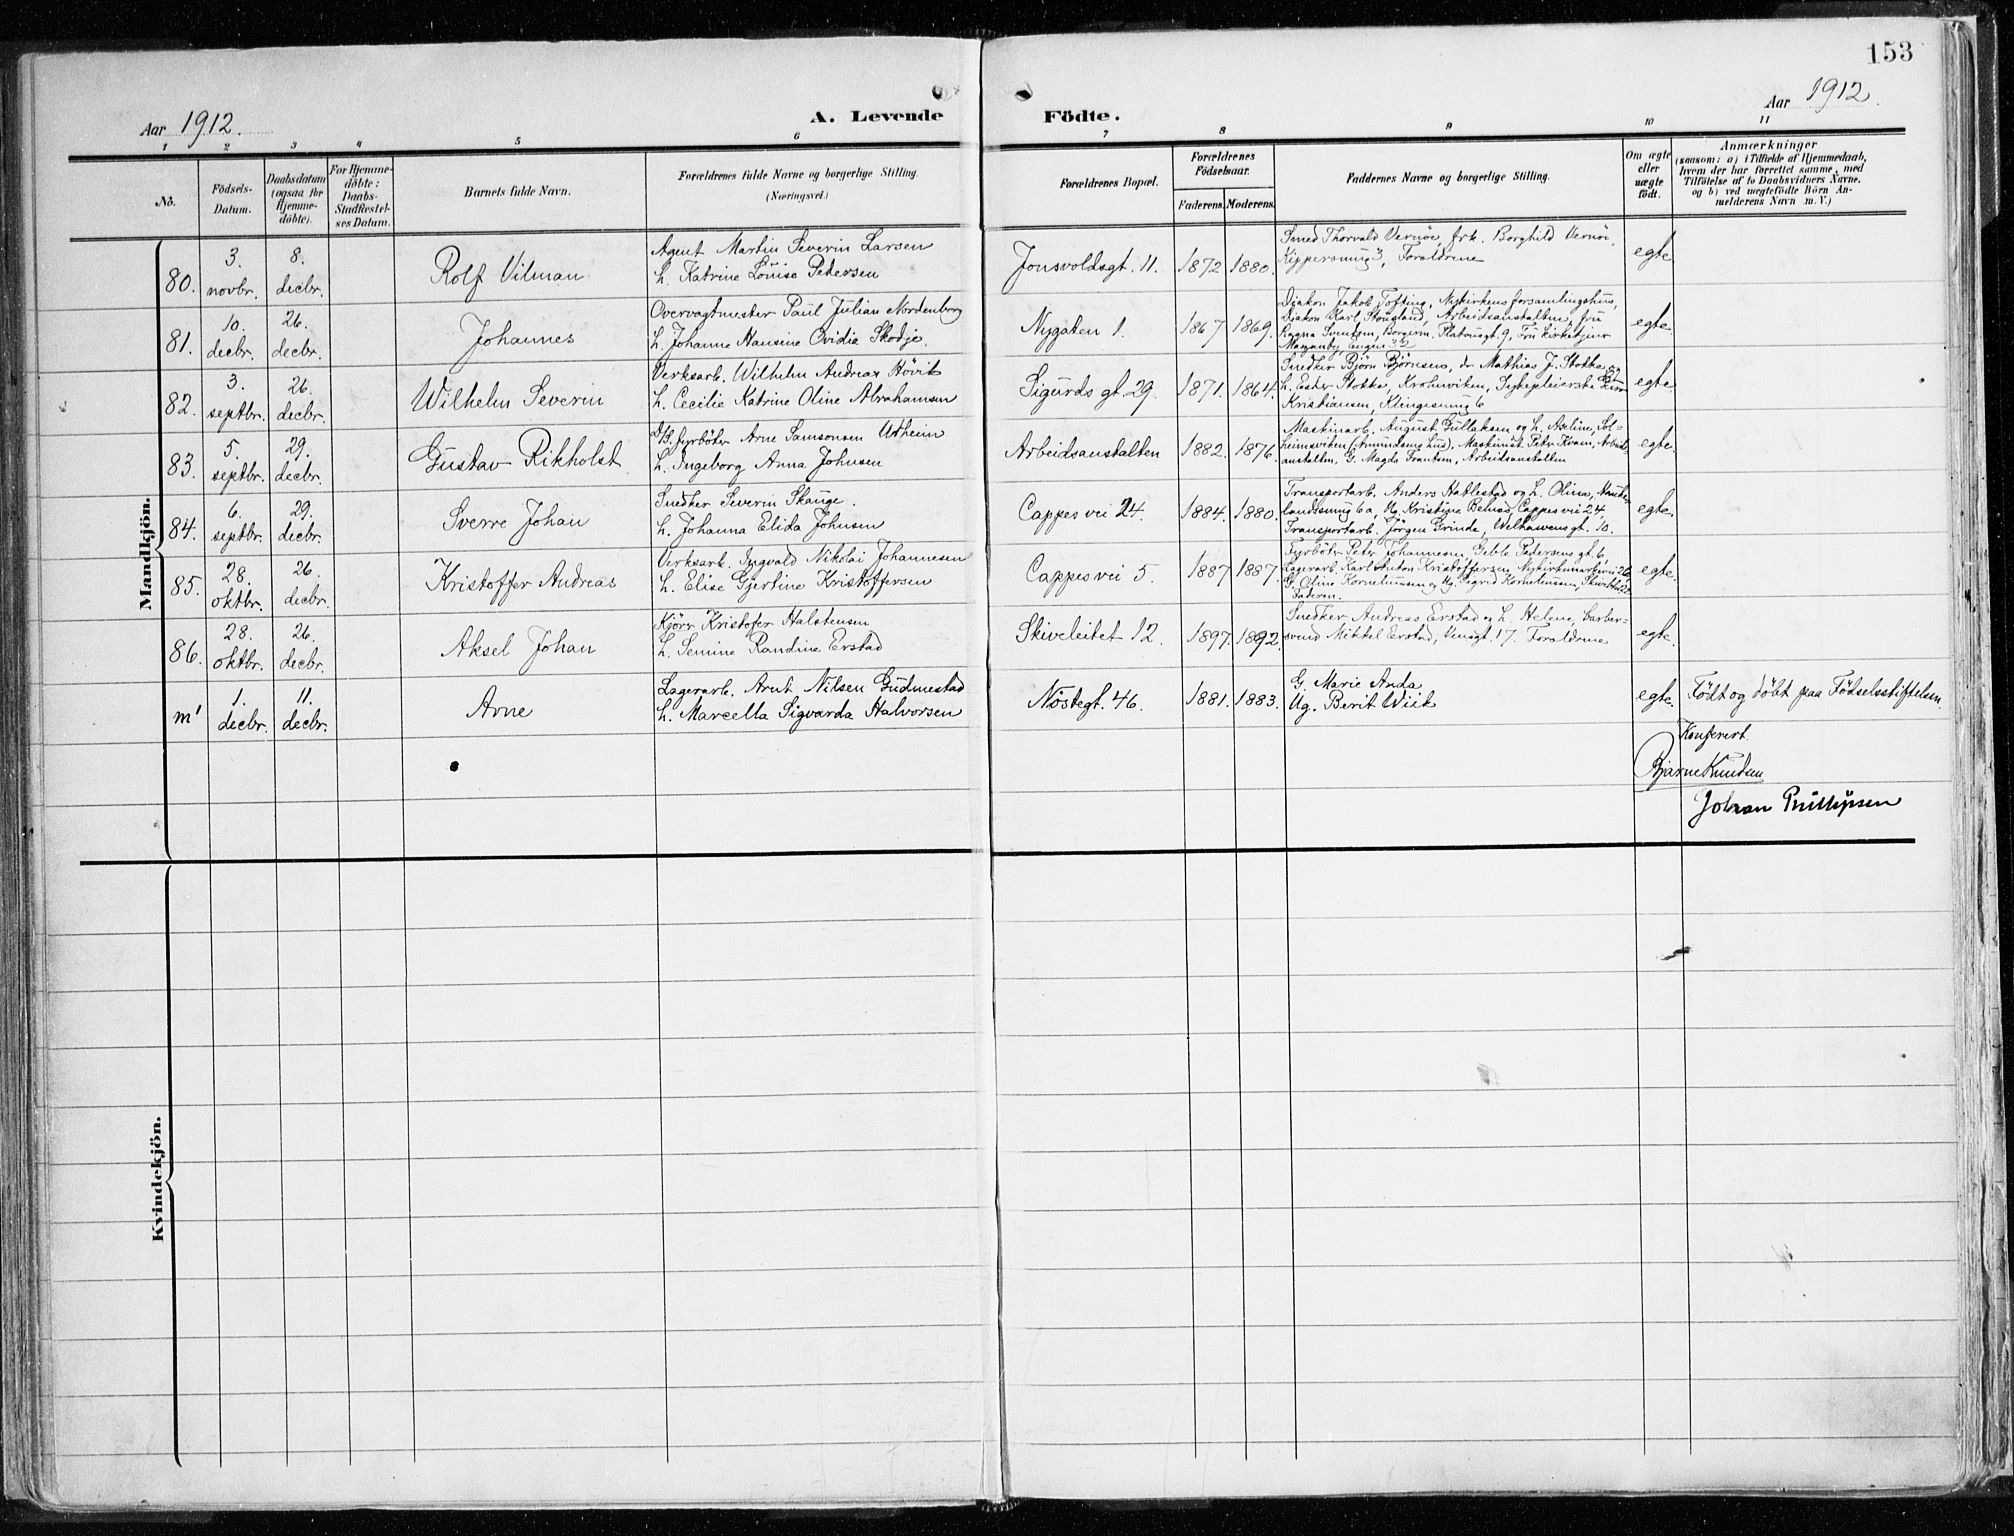 153
Aar 1912.
A. Levende
Födte.
Aar 1912.
1 2 3 4 5 6 7 8 9 10 11
No.
Födsels-
Datum.
Daabsdatum
(ogsaa for
Hjemme-
döbte).
For Hjemme-
döbte:
Daabs-
Stadfæstel-
ses Datum.
Barnets fulde Navn.
Forældrenes fulde Navne og borgerlige Stilling.
(Næringsvei.)
Forældrenes Bopæl.
Forældrenes
Födselsaar.
Faderens. Moderens.
Faddernes Navne og borgerlige Stilling.
Om ægte
eller
uægte
födt.
Anmærkninger
(saasom: a) i Tilfælde af Hjemmedaab,
hvem der har forrettet samme, med
Tilföielse af to Daabsvidners Navne.
og b) ved uægtefödte Börn An-
melderens Navn m. V.)
Mandkjön.
80.
3.
novbr.
8.
decbr.
Rolf Vilman
Agent Martin Severin Larsen
h. Katrine Louise Petersen
Jonsvoldsgt. 11.
1872 1880.
Smed Thorvald Vernøe, frk. Borghild Vernøe,
3, Forældrene
egte
81.
10.
decbr.
26.
decbr.
Johannes
Overvagtmester Paul Julian Nordenborg
h. Johanne Hansine Ovidie Skodje.
Nygaten 1.
1867 1869.
Diakon Jakob Tofting, Nykirkens forsamlingshus,
Diakon Karl Stousland, Arbeidsanstalten, fru
Ragna Svendsen, Platousgt. 9, Fru Kirketjener
egte
82.
3.
septbr.
26.
decbr.
Wilhelm Severin
Verksarb. Wilhelm Andreas Hövik
h. Cecilie Katrine Oline Abrahamsen
Sigurds gt. 29.
1871. 1864.
Snedker Björn Björnsen, do Mathias J. Stokke og
h. Ester Stokke, Krohnviken, Sykepleierske
Kristiansen, Klingesmug 6
egte
83.
5.
septbr.
29.
decbr.
Gustav Rikholst.
D/S. fyrböter Arne Samsonsen Utheim
h. Ingeborg Anna Johnsen
Arbeidsanstalten
1882. 1876.
Maskinarb. August Gullaksen og h. Aseline, Sol-
heimsviken (Amundsens hus). Maskinist Petr Kvam, Arbeids-
anstalten, G. Magda Frantsen, Arbeidsanstalten
egte.
84.
6.
septbr.
29.
decbr.
Sverre Johan
Snedker Severin Skauge.
h. Johanna Elida Johnsen
Cappes vei 24.
1884. 1880.
Transportarb. Anders Hatlestad og h. Olina,
landsmug 6a, Ug. Kristine Cappes vei 24,
Transportarb. Jörgen Grinde, Welhavensgt. 10.
egte.
85.
28.
oktbr.
26.
decbr.
Kristoffer Andreas
Verksarb. Ingvald Nikolai Johannesen
h. Elise Gjertine Kristoffersen
Cappes vei 5.
1887 1887.
Fyrböter Peter Johannesen, Geble Pedersens gt. 6,
Lagerarb. Karl Anton Kristoffersen, Nykirkemarksvei 26,
G. Oline Korneliussen og Ug. Sigrid Korneliussen,
Faderen.
egte.
86.
28.
oktbr.
26.
decbr.
Aksel Johan
Kjörer Kristofer Halstensen
h. Semine Randine Erstad
Skiveleitet 12.
1897. 1892.
Snedker Andreas Erstad og h. Helene, barber-
svend Mikkel Erstad, 17. Forældrene
egte.
m'
1.
decbr.
11.
decbr.
Arne
Lagerarb. Arnt Nilsen Gudmestad
h. Marcella Sigvarda Halvorsen
Nöstegt. 46.
1881. 1883.
G. Marie Anda
Ug. Berit Wiik
egte.
Födt og döbt paa Födselsstiftelsen.
Konferert.
Bjarne Knudsen
Johan Phillipsen
Kvindekjön.